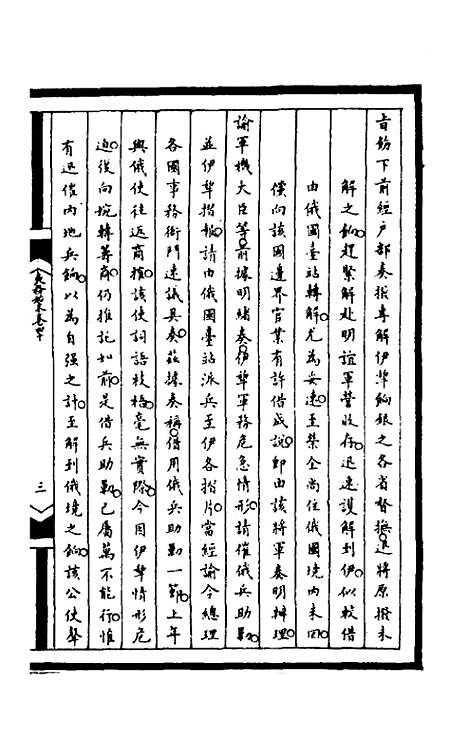 旨飭下前經戶部奏撥專解伊犂餉銀之各省督撫。迅將原撥未
解之餉。趕緊解赴明誼軍營收存。迅速護解到伊。似較借
由俄國臺站轉解。尤為妥速。至榮全尚住俄國境內未回。
僅向該國邊界官業有許借成說。即由該將軍奏明辦理。
諭軍機大臣等。前據明緒奏。伊犂軍務危急情形。請催俄兵助勦。
並伊犂摺報。請由俄國臺站派兵至伊各摺片。當經諭令總理
各國事務衙門速議具奏。茲據奏稱。借用俄兵助勦一節。上年
與俄使往返商搉。該使詞語枝梧。毫無實際。今因伊犂情形危
迫。復向婉轉籌商。仍推託如前。是借兵助勦。已屬萬不能行。惟
有迅催內地兵餉。以為自強之計。至解到俄境之餉。該公使聲
夷務始末卷四十
三